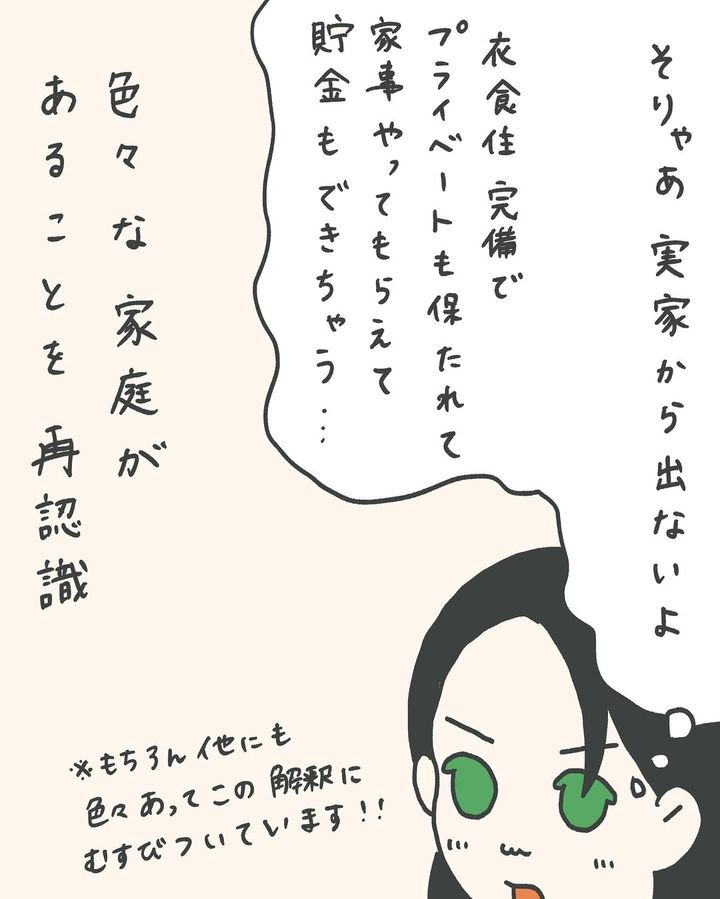 そりゃあ 実家から出ないよ
衣食住 完備で
プライベートも保たれて
家事やってもらえて
貯金もできちゃう…
色々な 家庭が
あることを 再認識
※もちろん他にも
色々あってこの解釈に
むすびついています!!